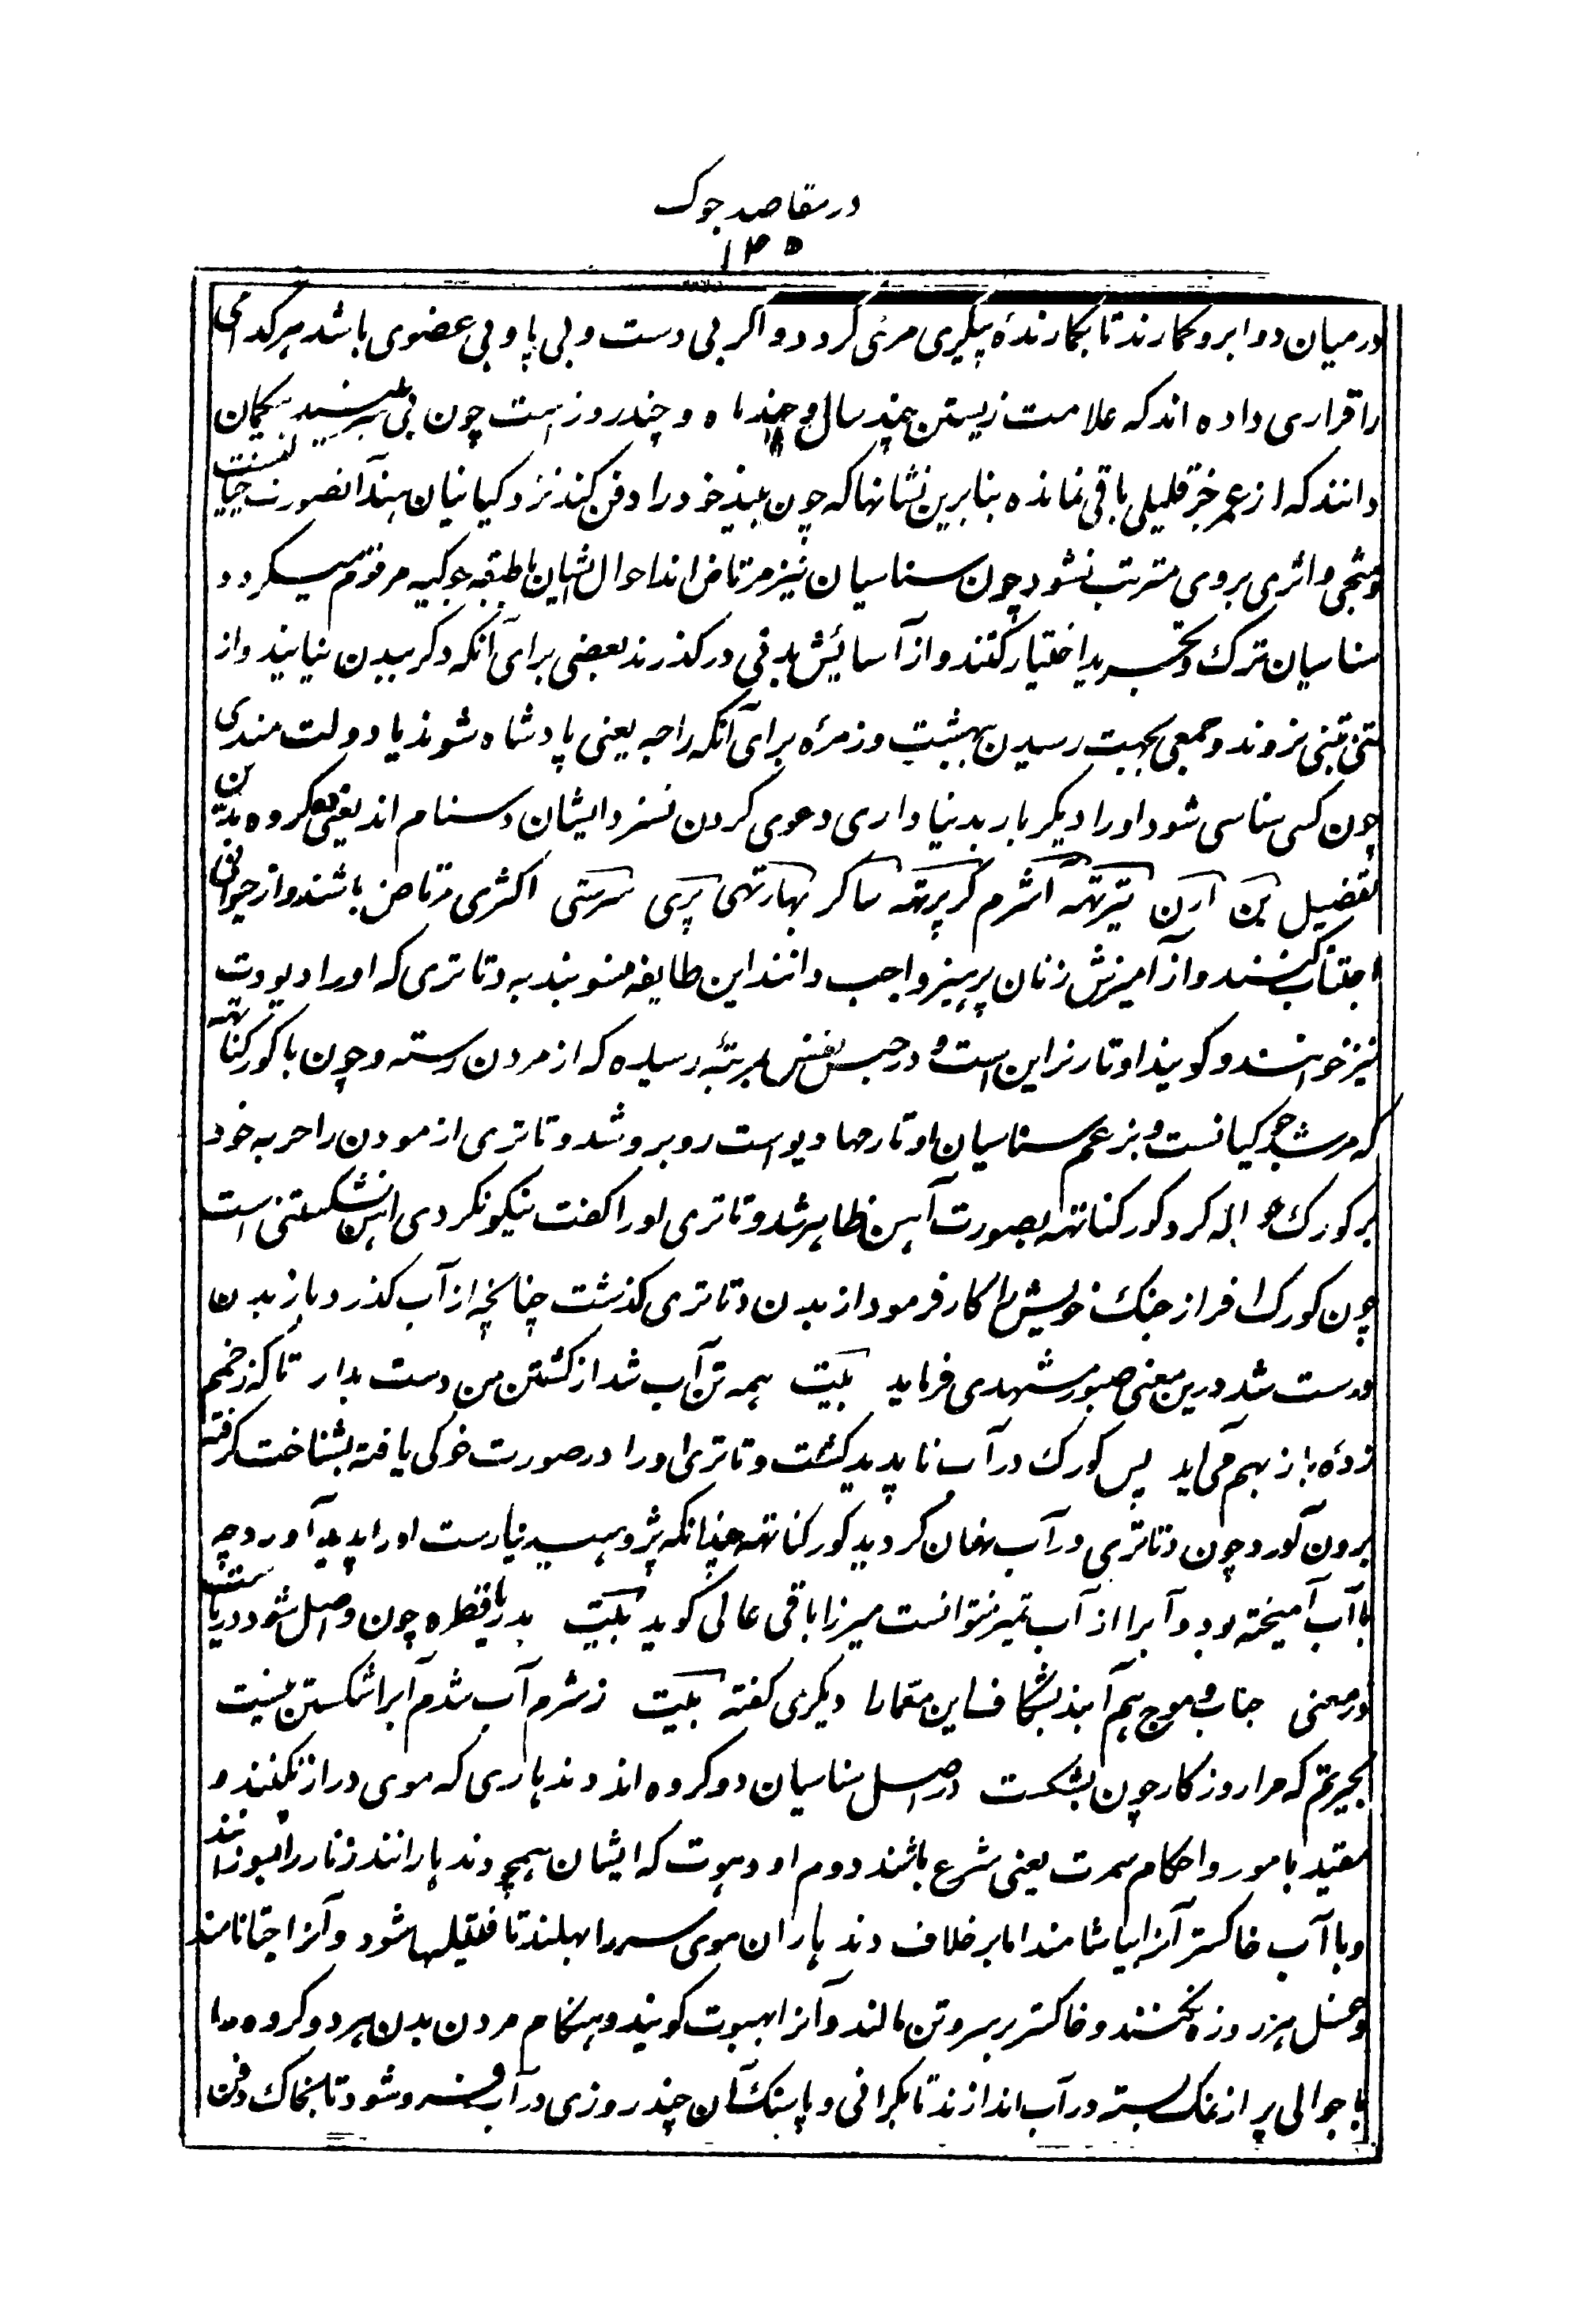 در مقاصد جوک
۱۳۵
در میان دو ابرو نکارند تا نکارندهٔ پیکری مرئی کردد و اکر بی دست و بی پا و بی عضوی باشد هر کدامی
را قراری داده اند که علامت زیستن چند سال و چند ماه و چند روز است چون بی سر بینند بیکمان
دانند که از عمر جز قلیلی باقی نمانده بنابرین نشانها که چون بیند خود را دفن کند نزد کیانیان هند آنصورت
و اثری بروی مترتب نشود چون سناسیان نیز مرتاض اند احوال ایشان با طبقه جوکیه مرقوم میکردد
سناسیان ترک و تجرید اختیار کنند و از آسایش بدنی درکذرند بعضی برای آنکه دکر ببدن نیایند و از
تنی بتنی نروند و جمعی بجهت رسیدن بهشت و زمرهٔ برای آنکه راجه یعنی پادشاه شوند یا دولت مندی
چون کسی سناسی شود او را دیکر بار بدنیا داری دعوی کردن نسزد ایشان دسنام اند یعنی ده کروه بدین
تفصیل بن آرن تیرتهه آشرم کر پربتهه ساکر بهارتهی پری سرستی اکثری مرتاض باشند و از حیوانی
اجتناب کنند و از آمیزش زنان پرهیز واجب دانند این طایفه منسوبند به دتاتری که او را دیودت
نیز خوانند و کویند اوتار نراین است و در حبس نفس بمرتبهٔ رسیده که از مردن رسته و چون با کورکناتهه
که مرشد جوکیانست و بزعم سناسیان اوتار مهادیو است روبرو شد دتاتری ازمودن را حربه خود
بر کورک حواله کرد کورکناتهه بصورت آهن ظاهر شد دتاتری اورا کفت نیکو نکردی آهن شکستنی است
چون کورک افراز جنک خویش را کار فرمود از بدن دتاتری کذشت چنانچه از آب کذرد و باز بدن
درست شد درین معنی صبور مشهدی فرماید بیت همه تن آب شد از کشتن من دست بدار تا که زخم
زدهٔ باز بهم می آید پس کورک در آب ناپدید کشت دتاتری اورا در صورت خوکی یافته بشناخت کرفته
برون آورد چون دتاتری در آب نهان کردید کورکناتهه چندانکه پژوهید نیارست اورا پدید آورد چه
با آب آمیخته بود و آبرا از آب تمیز نتوانست میرزا باقی عالی کوید بیت بدریا قطره چون واصل شود دریاستش
در معنی حباب و موج هم آبند بشکاف این معما را دیکری کفته بیت ز شرم آب شدم آبرا شکستن نیست
بحیرتم که مرا روزکار چون بشکست در اصل سناسیان دو کروه اند دندهاری که موی دراز نکنند و
مقید بامور و احکام سمرت یعنی شرع باشند دوم اودهوت که ایشان همچو دندهارانند زنار را بسوزانند
و با آب خاکستر آنرا بیاشامند اما بر خلاف دندهاران موی سر را بهلند تا فتیلها شود و آنرا جتا نامند
و غسل هر روزه نکنند و خاکستر بر سر و تن مالند و آنرا بهبوت کویند و هنکام مردن بدن هر دو کروه را
با جوالی پر از نمک بسته در آب اندازند تا بکرانی و پاسنک آن چند روزی در آب فرو شود تا بخاک دفن